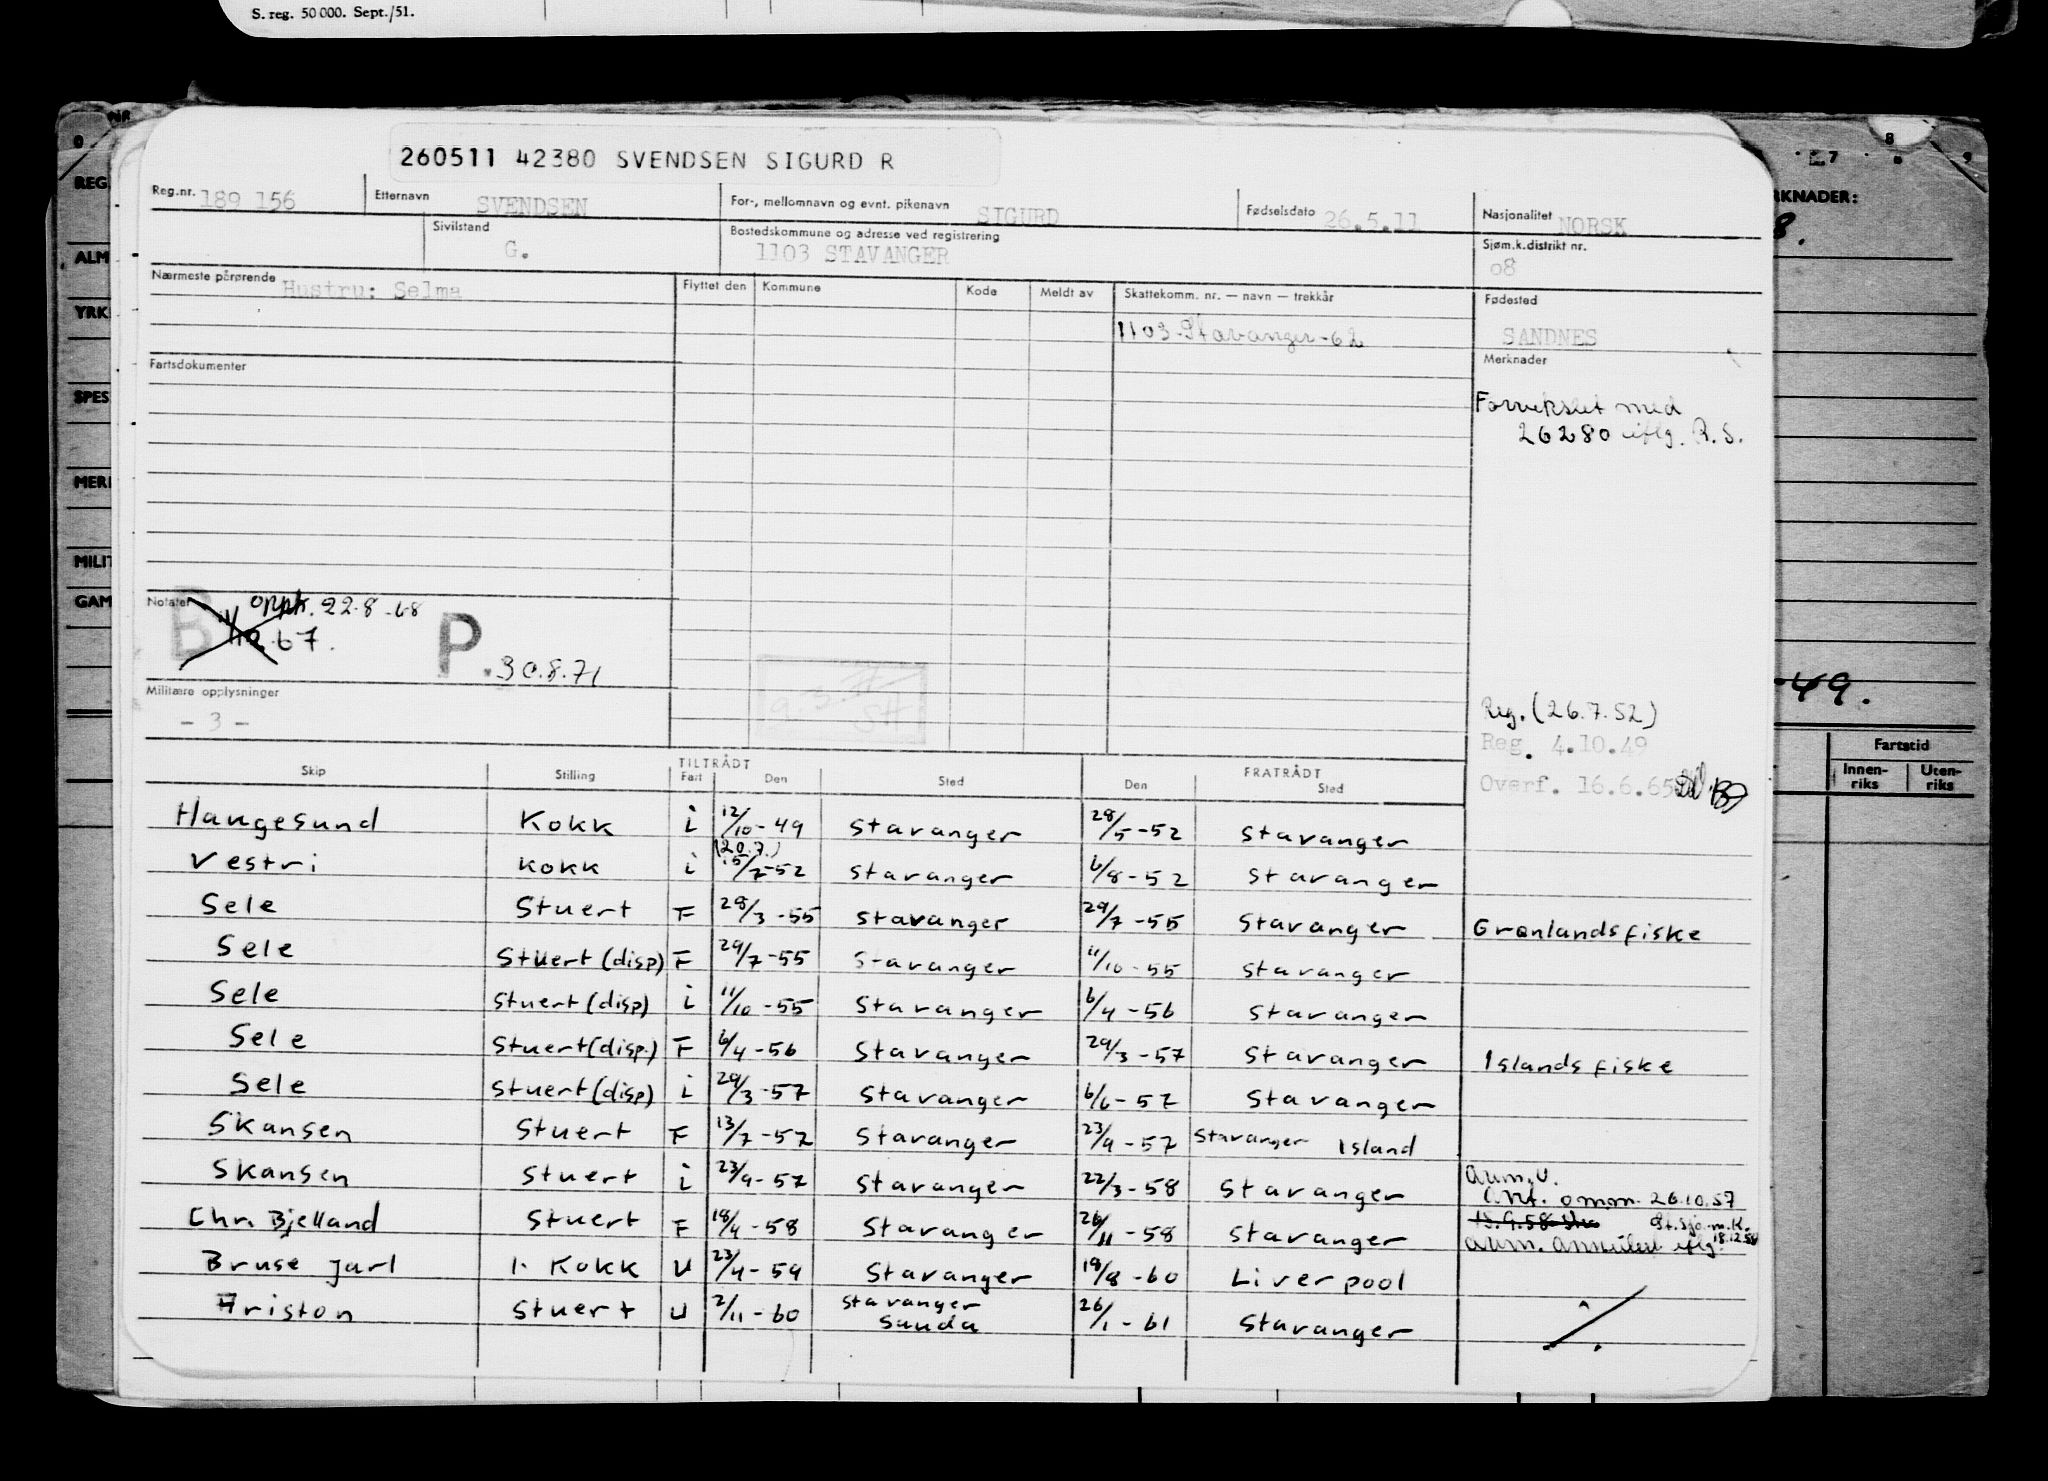 S. reg. 50 000. Sept./51.
260511 42380 SVENDSEN SIGURD R
Reg.nr. 189 156 Etternavn SVENDSEN For-, mellomnavn og evnt. pikenavn SIGURD Fødselsdato 26.5.11 Nasjonalitet NORSK
Sivilstand G. Bostedskommune og adresse ved registrering 1103 STAVANGER Sjøm.k.distrikt nr. 08
Nærmeste pårørende Hustru: Selma Flyttet den Kommune Kode Meldt av Skattekomm. nr. — navn — trekkår Fødested
1103-Stavanger-62 SANDNES
Fartsdokumenter Merknader
Forvekslet med
26280 iflg. R.S.
Notater opph. 22-8-68
B 67. P. 30.8.71
Militære opplysninger
- 3 -
Reg. (26.7.52)
Reg. 4.10.49
Overf. 16.6.65
TILTRÅDT FRATRÅDT
Skip Stilling Fart Den Sted Den Sted
Haugesund Kokk i 12/10-49 Stavanger 28/5-52 Stavanger
(20.7.)
Vestri Kokk i 15/7-52 Stavanger 6/8-52 Stavanger
Sele Stuert F 28/3-55 Stavanger 29/7-55 Stavanger Grønlandsfiske
Sele Stuert (disp) F 29/7-55 Stavanger 11/10-55 Stavanger
Sele Stuert (disp) i 11/10-55 Stavanger 6/4-56 Stavanger
Sele Stuert (disp.) F 6/4-56 Stavanger 29/3-57 Stavanger Islandsfiske
Sele Stuert (disp) i 29/3-57 Stavanger 6/6-57 Stavanger
Skansen Stuert F 13/7-57 Stavanger 23/9-57 Stavanger Island
Skansen Stuert i 23/9-57 Stavanger 22/3-58 Stavanger
26.10.57
Chr. Bjelland Stuert F 18/4-58 Stavanger 26/11-58 Stavanger
Bruse Jarl 1. Kokk U 23/4-59 Stavanger 19/8-60 Liverpool
Ariston Stuert U 2/11-60 Stavanger 26/1-61 Stavanger
Sauda
REG.
ALM
YRK
SPES
MERK
MILIT
GAM
8
7
9
RKNADER:
8.
-49.
Fartstid
Innen-
riks
Uten-
riks